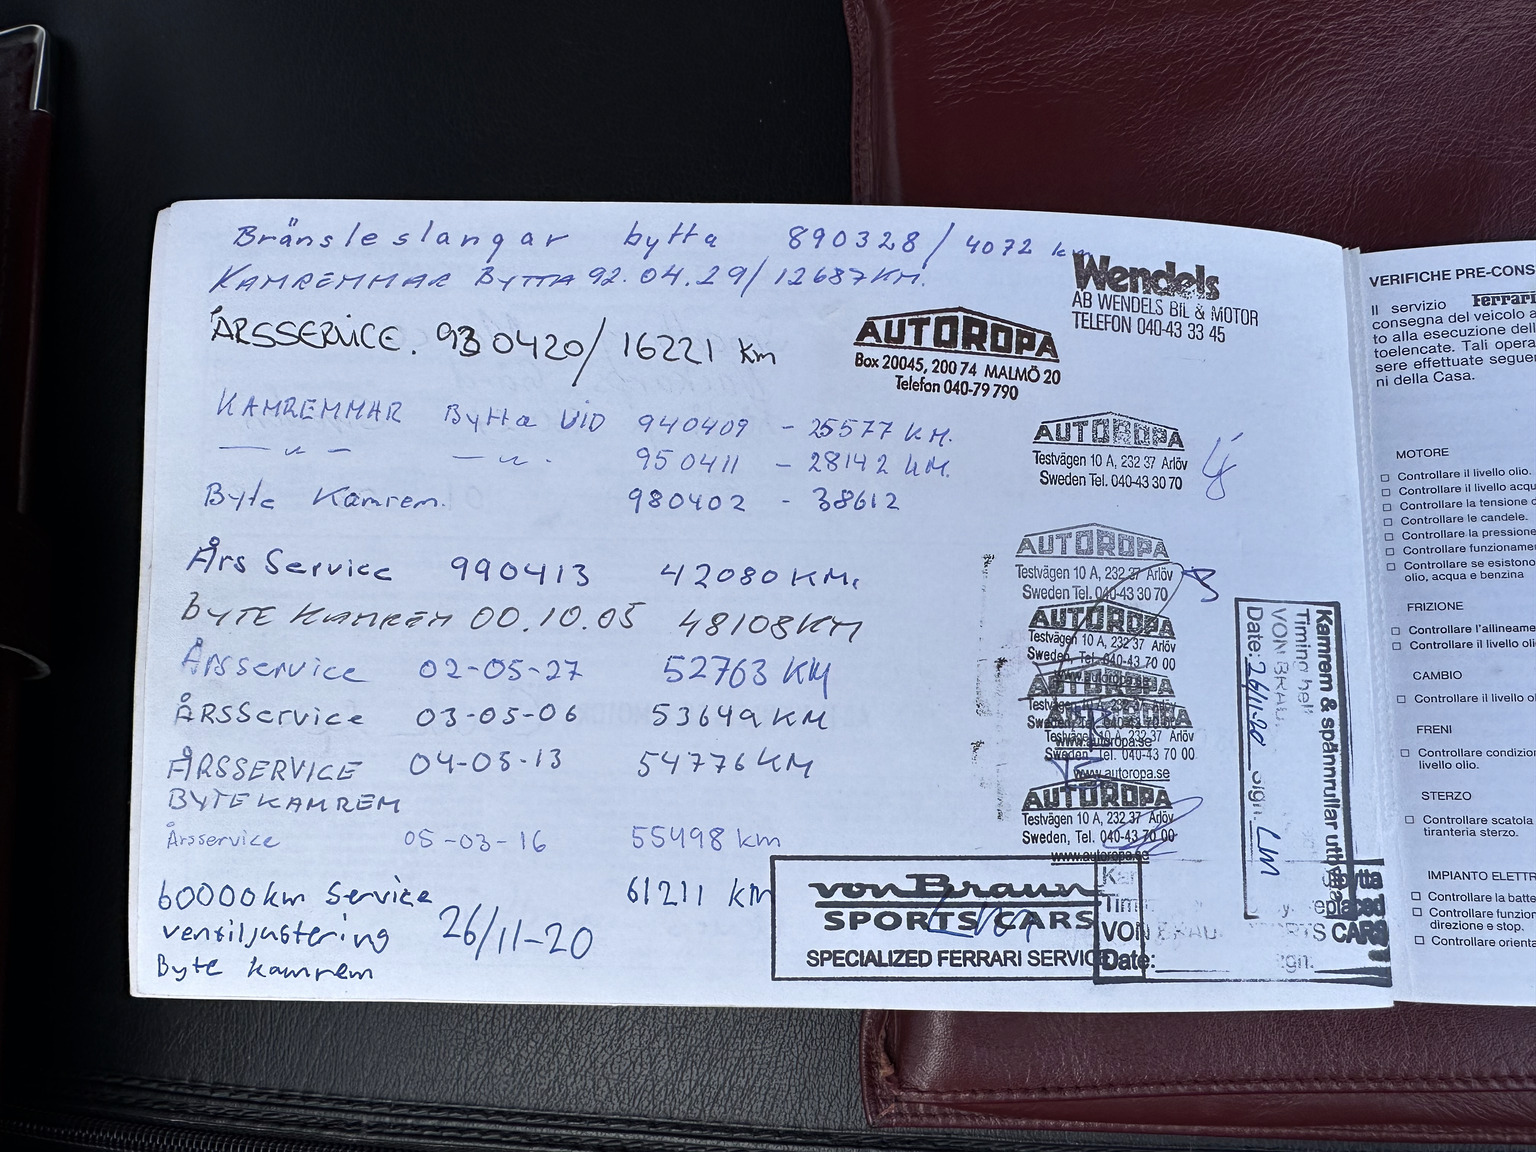 Bränsleslangar bytta 890328 / 4072 km
KAMREMMAR BYTTA 92.04.29/ 12687 KM.
Wendels
AB WENDELS BIL & MOTOR
TELEFON 040-43 33 45
ÅRSSERVICE. 930420/ 16221 km
AUTOROPA
Box 20045, 200 74 MALMÖ 20
Telefon 040-79 790
KAMREMMAR Bytta VID 940409 - 25577 KM.
— " — — " - 950411 - 28142 KM.
Byte Kamrem. 980402 - 38612
AUTOROPA
Testvägen 10 A, 232 37 Arlöv
Sweden Tel. 040-43 30 70
Års Service 990413 42080 KM.
BYTE KAMREM 00.10.05 48108 KM
Årsservice 02-05-27 52763 KM
ÅRSService 03-05-06 53649 KM
ÅRSSERVICE 04-05-13 54776 KM
BYTE KAMREM
Årsservice 05-03-16 55498 km
AUTOROPA
Testvägen 10 A, 232 37 Arlöv
Sweden Tel. 040-43 30 70
AUTOROPA
Testvägen 10 A, 232 37 Arlöv
Sweden, Tel. 040-43 70 00
www.autoropa.se
AUTOROPA
Testvägen 10 A, 232 37 Arlöv
Sweden, Tel. 040-43 70 00
www.autoropa.se
AUTOROPA
Testvägen 10 A, 232 37 Arlöv
Sweden, Tel. 040-43 70 00
www.autoropa.se
AUTOROPA
Testvägen 10 A, 232 37 Arlöv
Sweden, Tel. 040-43 70 00
www.autoropa.se
60000km Service 61211 KM
ventiljustering 26/11-20
Byte kamrem
von Braun
SPORTS CARS
SPECIALIZED FERRARI SERVICE
Kamrem & spännrullar utbytta
Timing belt replaced
VON BRAUN
Date: 26/11-20 Sign. LM
VON BRAUN SPORTS CARS
Date: Sign.
VERIFICHE PRE-CONS
Il servizio Ferrari
consegna del veicolo a
to alla esecuzione dell
toelencate. Tali opera
sere effettuate seguen
ni della Casa.
MOTORE
□ Controllare il livello olio.
□ Controllare il livello acqu
□ Controllare la tensione d
□ Controllare le candele.
□ Controllare la pressione
□ Controllare funzionamen
□ Controllare se esistono
olio, acqua e benzina
FRIZIONE
□ Controllare l'allineame
□ Controllare il livello oli
CAMBIO
□ Controllare il livello ol
FRENI
□ Controllare condizion
livello olio.
STERZO
□ Controllare scatola
tiranteria sterzo.
IMPIANTO ELETTR
□ Controllare la batte
□ Controllare funzion
direzione e stop.
□ Controllare orienta